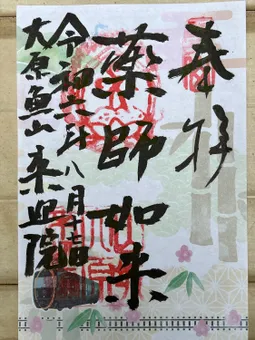 奉拝
薬師如来
令和六年八月十一日
大原魚山 来迎院